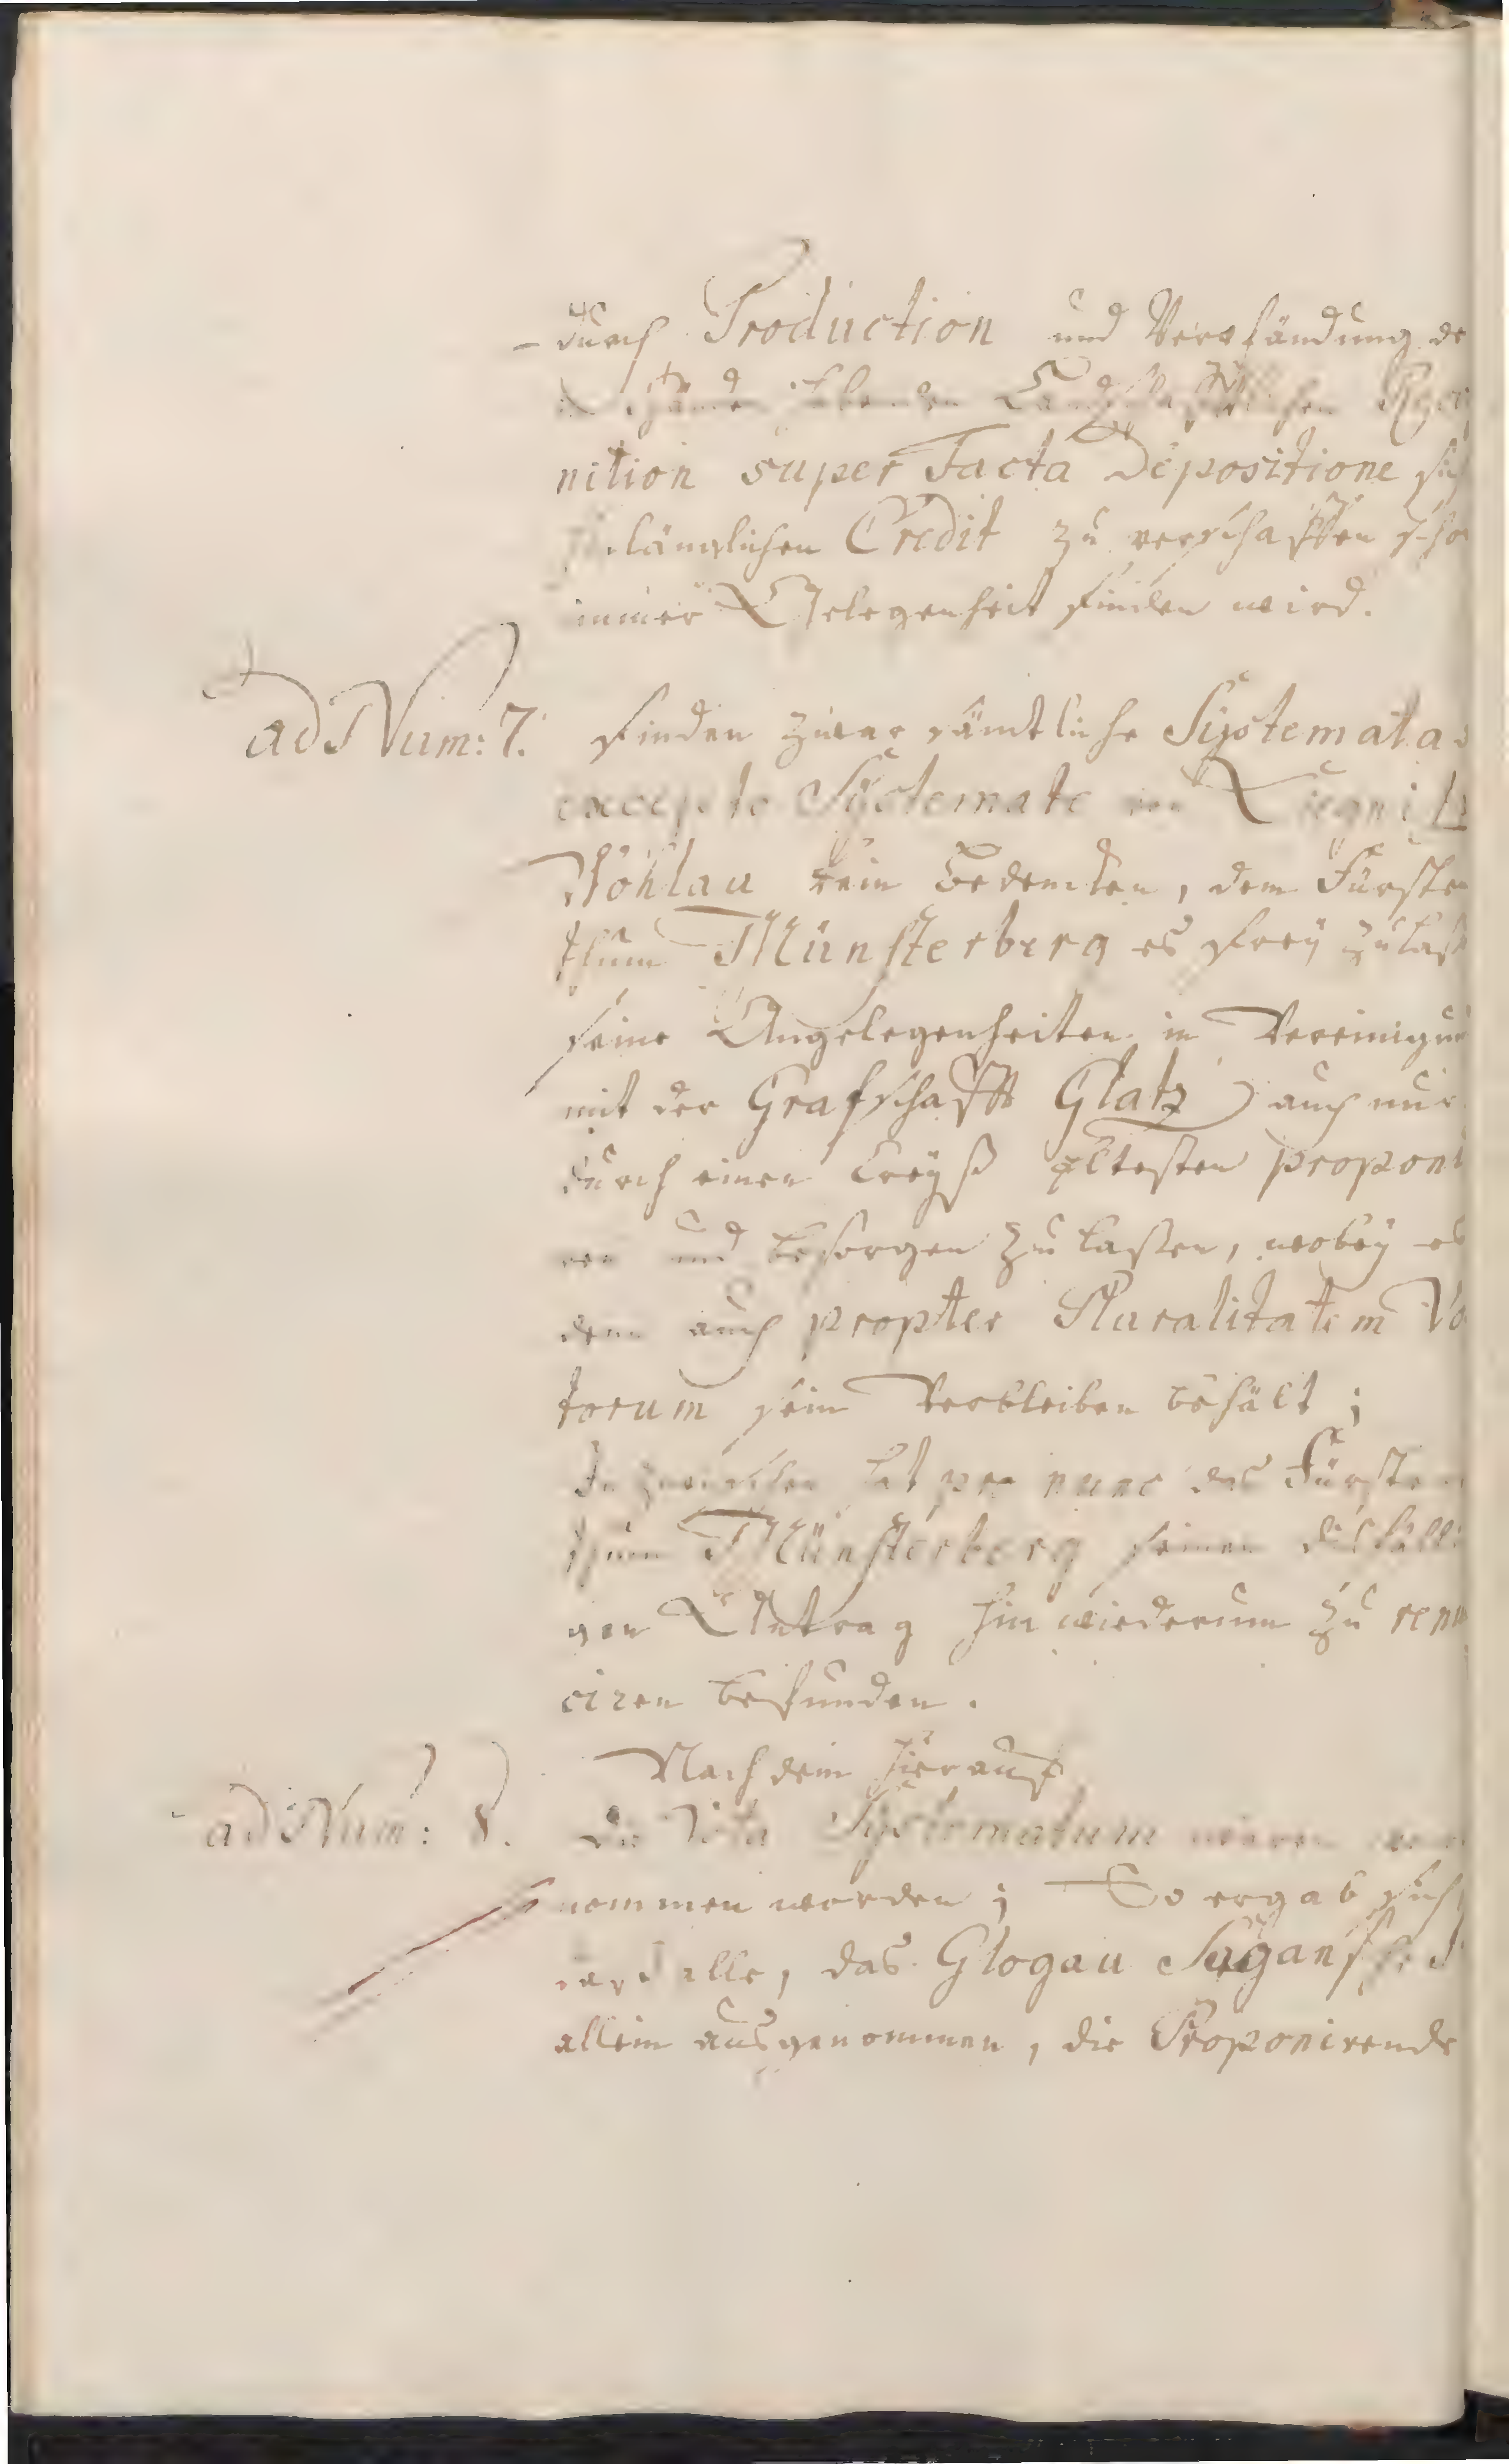 durch Production und Verpfändung de
in Händen habenden Landschafftlichen Recog
nition super Facta Depositione sich
länglichen Credit zu verschaffen scho
immer Gelegenheit finden wird.
ad Num: 7. Finden zwar sämtliche Systemata
excepto Systemate von Liegnitz
Wohlau kein Bedencken, dem Fürsten
thum Münsterberg es frey zu laß
seine Angelegenheiten in Vereinigun
mit der Grafschafft Glatz auch nur
durch einen Creyß Eltesten proponi
ren und besorgen zu laßen, wobey es
denn auch propter Pluralitatem Vo
torum sein Verbleiben behält;
Inzwischen hat pro nunc das Fürsten
thum Münsterberg seinen disfälli
gen Antrag hinwiederum zu renun
ciren befunden.
Nachdem hierauf
ad Num: 8. Die Vota Systematum waren
nommen worden; So ergab sich
alle, das Glogau Sagansche
allein ausgenommen, die Proponirende